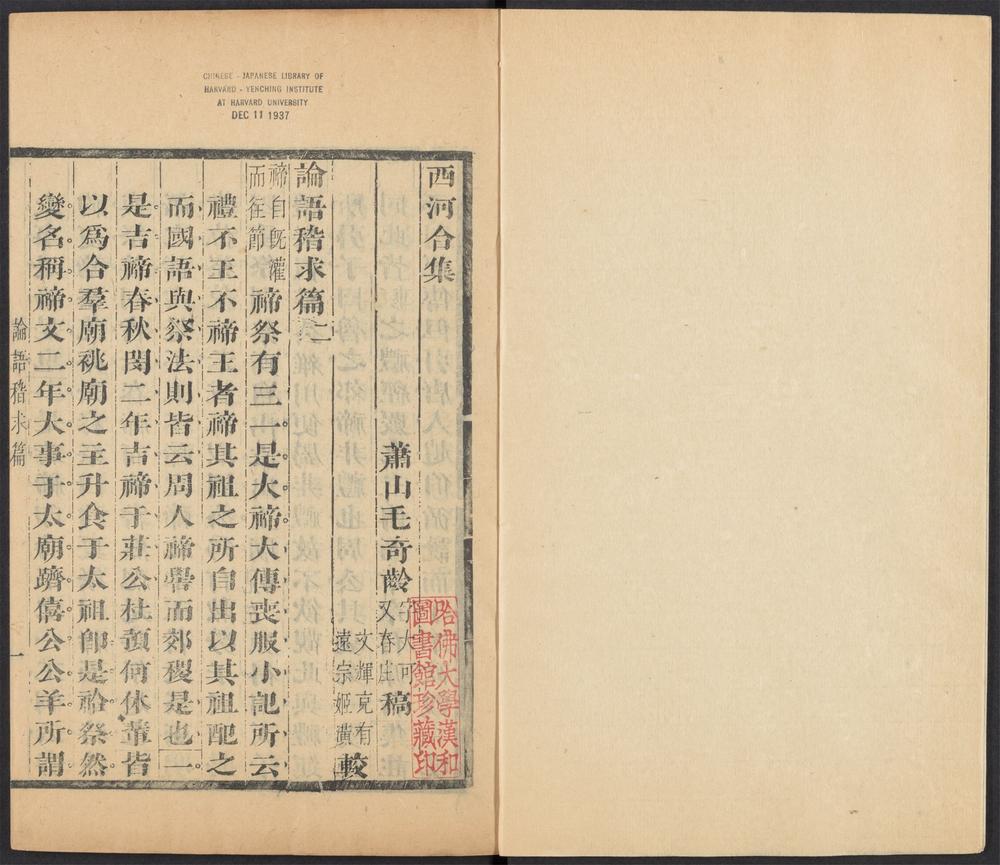 CHINESE - JAPANESE LIBRARY OF
HARVARD - YENCHING INSTITUTE
AT HARVARD UNIVERSITY
DEC 11 1937
西河合集
蕭山毛奇齡字大可又春庄稿
文輝克有
遠宗姬潢較
論語稽求篇二
禘自既灌
而徃節
禘祭有三一是大禘大傳喪服小記所云
禮不王不禘王者禘其祖之所自出以其祖配之
而國語與祭法則皆云周人禘嚳而郊稷是也一
是吉禘春秋閔二年吉禘于莊公杜預何休輩皆
以爲合羣廟祧廟之主升食于太祖卽是祫祭然
變名稱禘文二年大事于太廟躋僖公公羊所謂
論語稽求篇
一
哈佛大學漢和
圖書館珍藏印